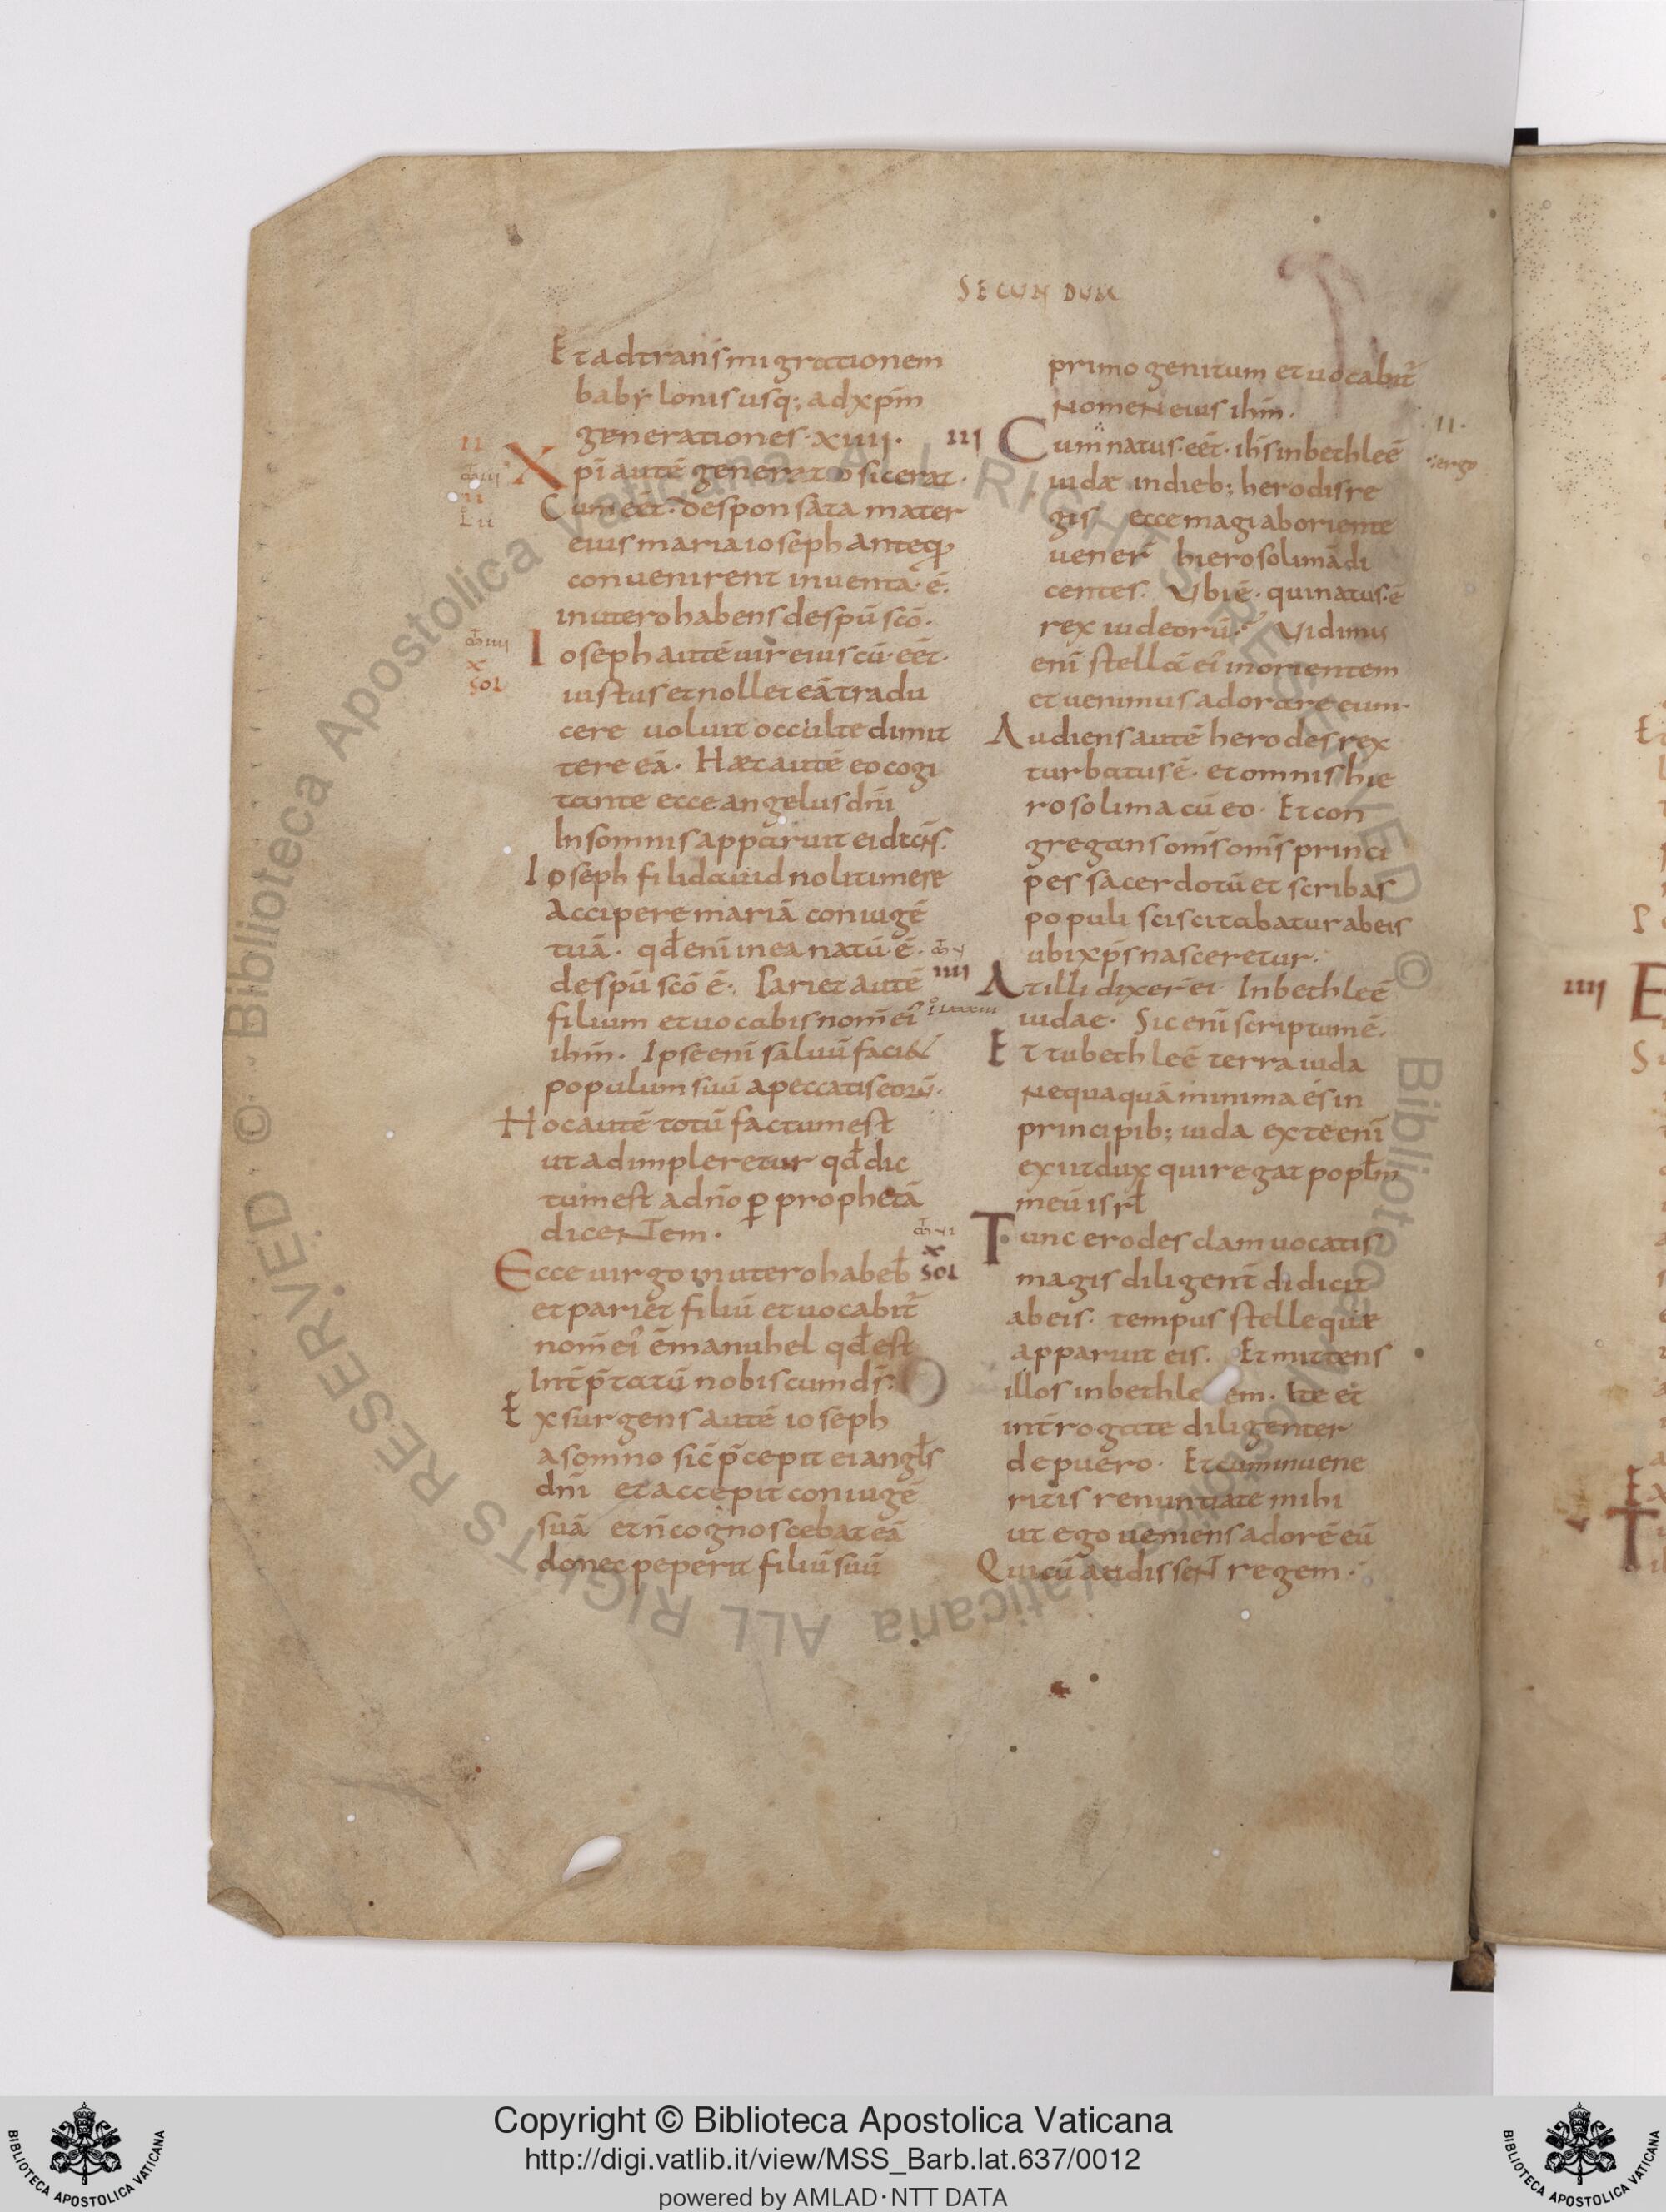 SECUNDUM
Et ad transmigrationem
babylonis usq; ad xp̄m
generationes·xiiii·
Xp̄i autē generatio sic erat·
Cum eēt·desponsata mater
eius maria ioseph anteq̄
convenirent inventa·ē·
in utero habens de sp̄u scō·
Ioseph autē vir eius cū·eēt·
iustus et nollet eā tradu
cere voluit occulte dimit
tere eā· Hæc autē eo cogi
tante ecce angelus dn̄i
In somnis apparuit ei dicns̄·
Ioseph fili david noli timere
Accipere mariā coniugē
tuā· qđ enī in ea natū·ē·
de sp̄u scō ē· Pariet autē
filium et vocabis nom̄ ei᾽
ihm̄· Ipse enī salvū faciet
populum suū a peccatis eorū·
Hoc autē totū factum est
ut adimpleretur qđ dic
tum est a dn̄o ꝑ prophetā
diceNTem·
Ecce virgo in utero habeƀ
et pariet filiū et vocabit̄
nom̄ ei᾽ ēmanuhel qđ est
Int̄p̄tatū nobiscum ds̄·
Exsurgens autē ioseph
a somno sic̄ p̄cepit ei angl̄s
dn̄i et accepit coniugē
suā et n̄ cognoscebat eā
donec peperit filiū suū
primogenitum et vocabit̄
NomeN eius ihm̄·
iii Cum natus·eēt·ihs̄ in bethleē
iudæ in dieb; herodis re
gis ecce magi ab oriente
vener̄ hierosolimā di
centes· Ubi ē· qui natus·ē
rex iudeorū· Vidimus
enī stellā ei᾽ in orientem
et venimus adorare eum·
Audiens autē herodes rex
turbatus ē· et omnis hie
rosolima cū eo· Et con
gregans om̄s om̄s princi
pes sacerdotū et scribas
populi sciscitabatur ab eis
ubi xp̄s nasceretur·
iiii At illi dixer̄ ei· In bethleē
iudae· Sic enī scriptum ē·
Et tu bethleē terra iuda
Nequaquā minima es in
principib; iuda ex te enī
exiit dux qui regat popl̄m
meū isrl̄
Tunc erodes clam vocatis
magis diligent̄ didicit
ab eis· tempus stelle quæ
apparuit eis· Et mittens
illos in bethle em· Ite et
int̄rogate diligenter
de puero· Et cum invene
ritis renuntiate mihi
ut ego veniens adorē eū
Qui cū audisseNT regem·
·II·
ergo
SOL
SOL
Copyright © Biblioteca Apostolica Vaticana
http://digi.vatlib.it/view/MSS_Barb.lat.637/0012
powered by AMLAD·NTT DATA
BIBLIOTECA APOSTOLICA VATICANA
BIBLIOTECA APOSTOLICA VATICANA
© Biblioteca Apostolica Vaticana ALL RIGHTS RESERVED
© Biblioteca Apostolica Vaticana ALL RIGHTS RESERVED